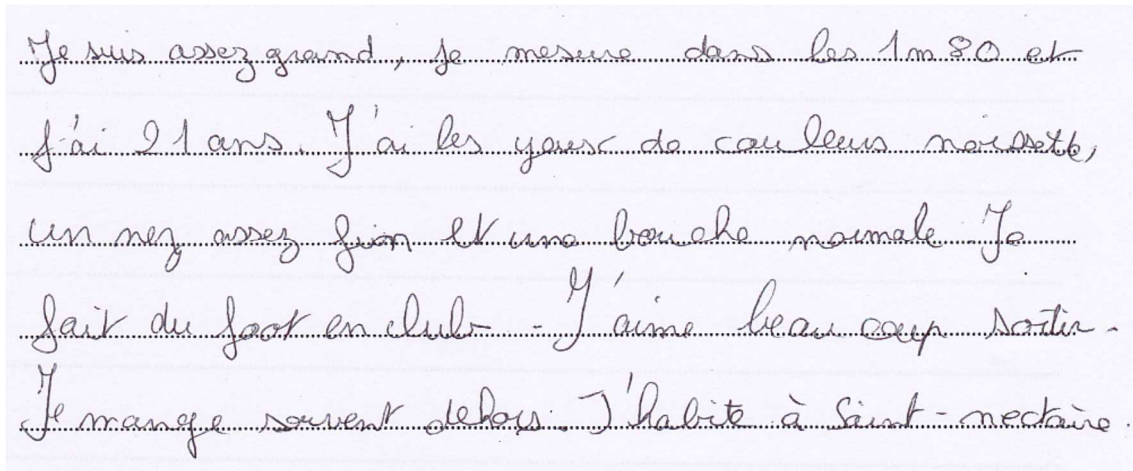 Je suis assez grand, je mesure dans les 1m80 et
j'ai 21 ans. J'ai les yeux de couleurs noissette,
un nez assez fion et une bouche normale. Je
fait du foot en club. J'aime beaucoup sortir.
Je mange souvent dehors. J'habite à Saint-nectaire.